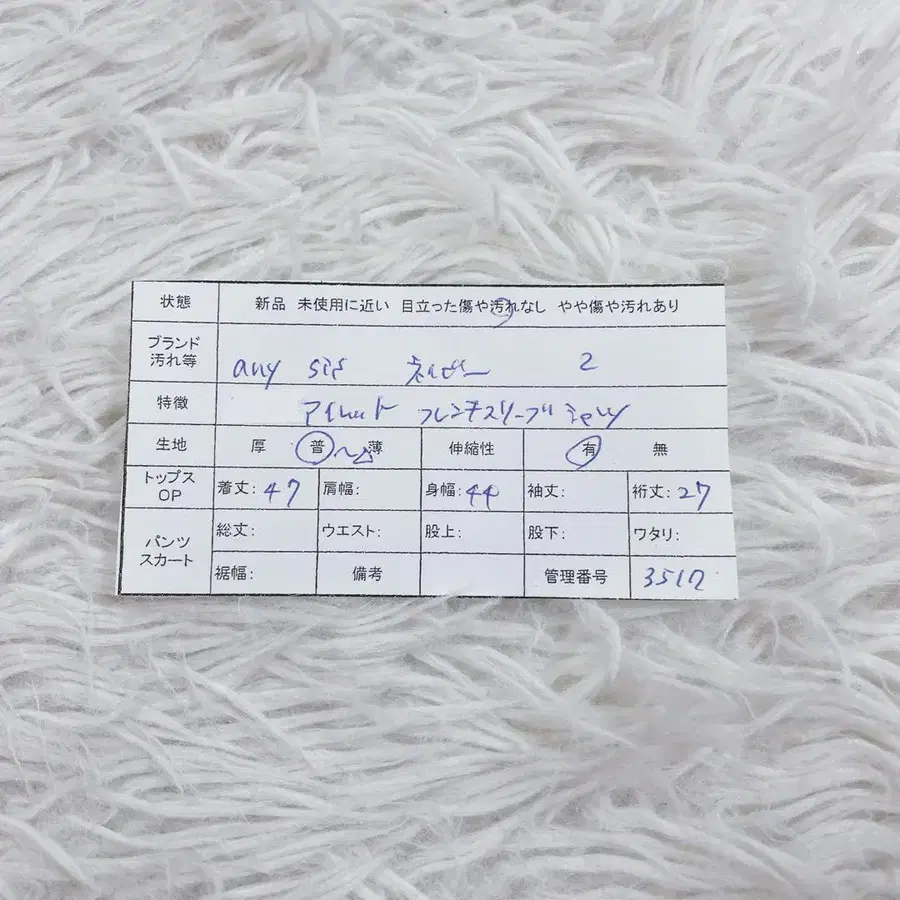 状態 新品 未使用に近い 目立った傷や汚れなし やや傷や汚れあり
ブランド 汚れ等 any sis ネイビー 2
特徴 アイレット フレンチスリーブ
生地 厚 普 ~ 薄 伸縮性 有 無
トップス OP 着丈: 47 肩幅: 身幅: 44 袖丈: 裄丈: 27
パンツ スカート 総丈: ウエスト: 股上: 股下: ワタリ:
裾幅: 備考 管理番号 3517